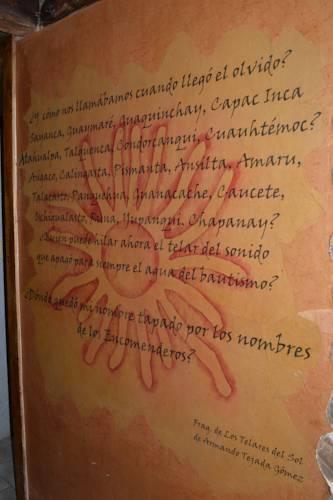 ¿Y cómo nos llamábamos cuando llegó el olvido?
Sananca, Guaymaré, Guaquinchay, Capac Inca
Atahualpa, Talquenca, Condorcanqui, Cuauhtémoc?
Angaco, Calingasta, Pismanta, Ansilta, Amaru,
Talacasto, Panquehua, Guanacache, Caucete,
Ischigualasto, Yupanqui, Chapanay?
¿Quien puede hilar ahora el telar del sonido
que apagó para siempre el agua del bautismo?
¿Dónde quedó mi nombre tapado por los nombres
de los Encomenderos?
Frag. de Los Telares del Sol
de Armando Tejada Gómez